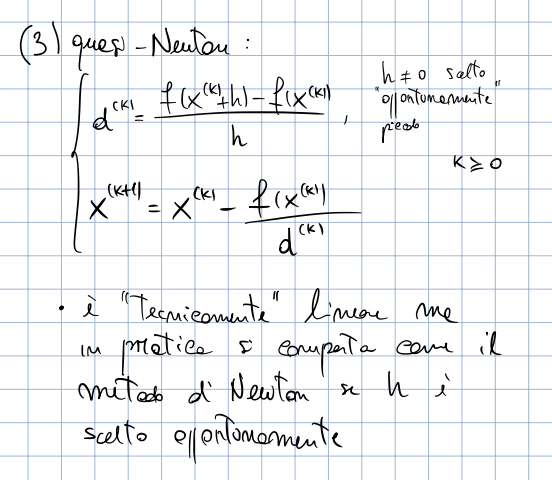 (3) quasi-Newton :
d^(k) = (f(x^(k)+h) - f(x^(k))) / h , h ≠ 0 scelto "opportunamente" piccolo
k ≥ 0
x^(k+1) = x^(k) - f(x^(k)) / d^(k)
• è "Tecnicamente" lineare ma
in pratica si comporta come il
metodo di Newton se h è
scelto opportunamente